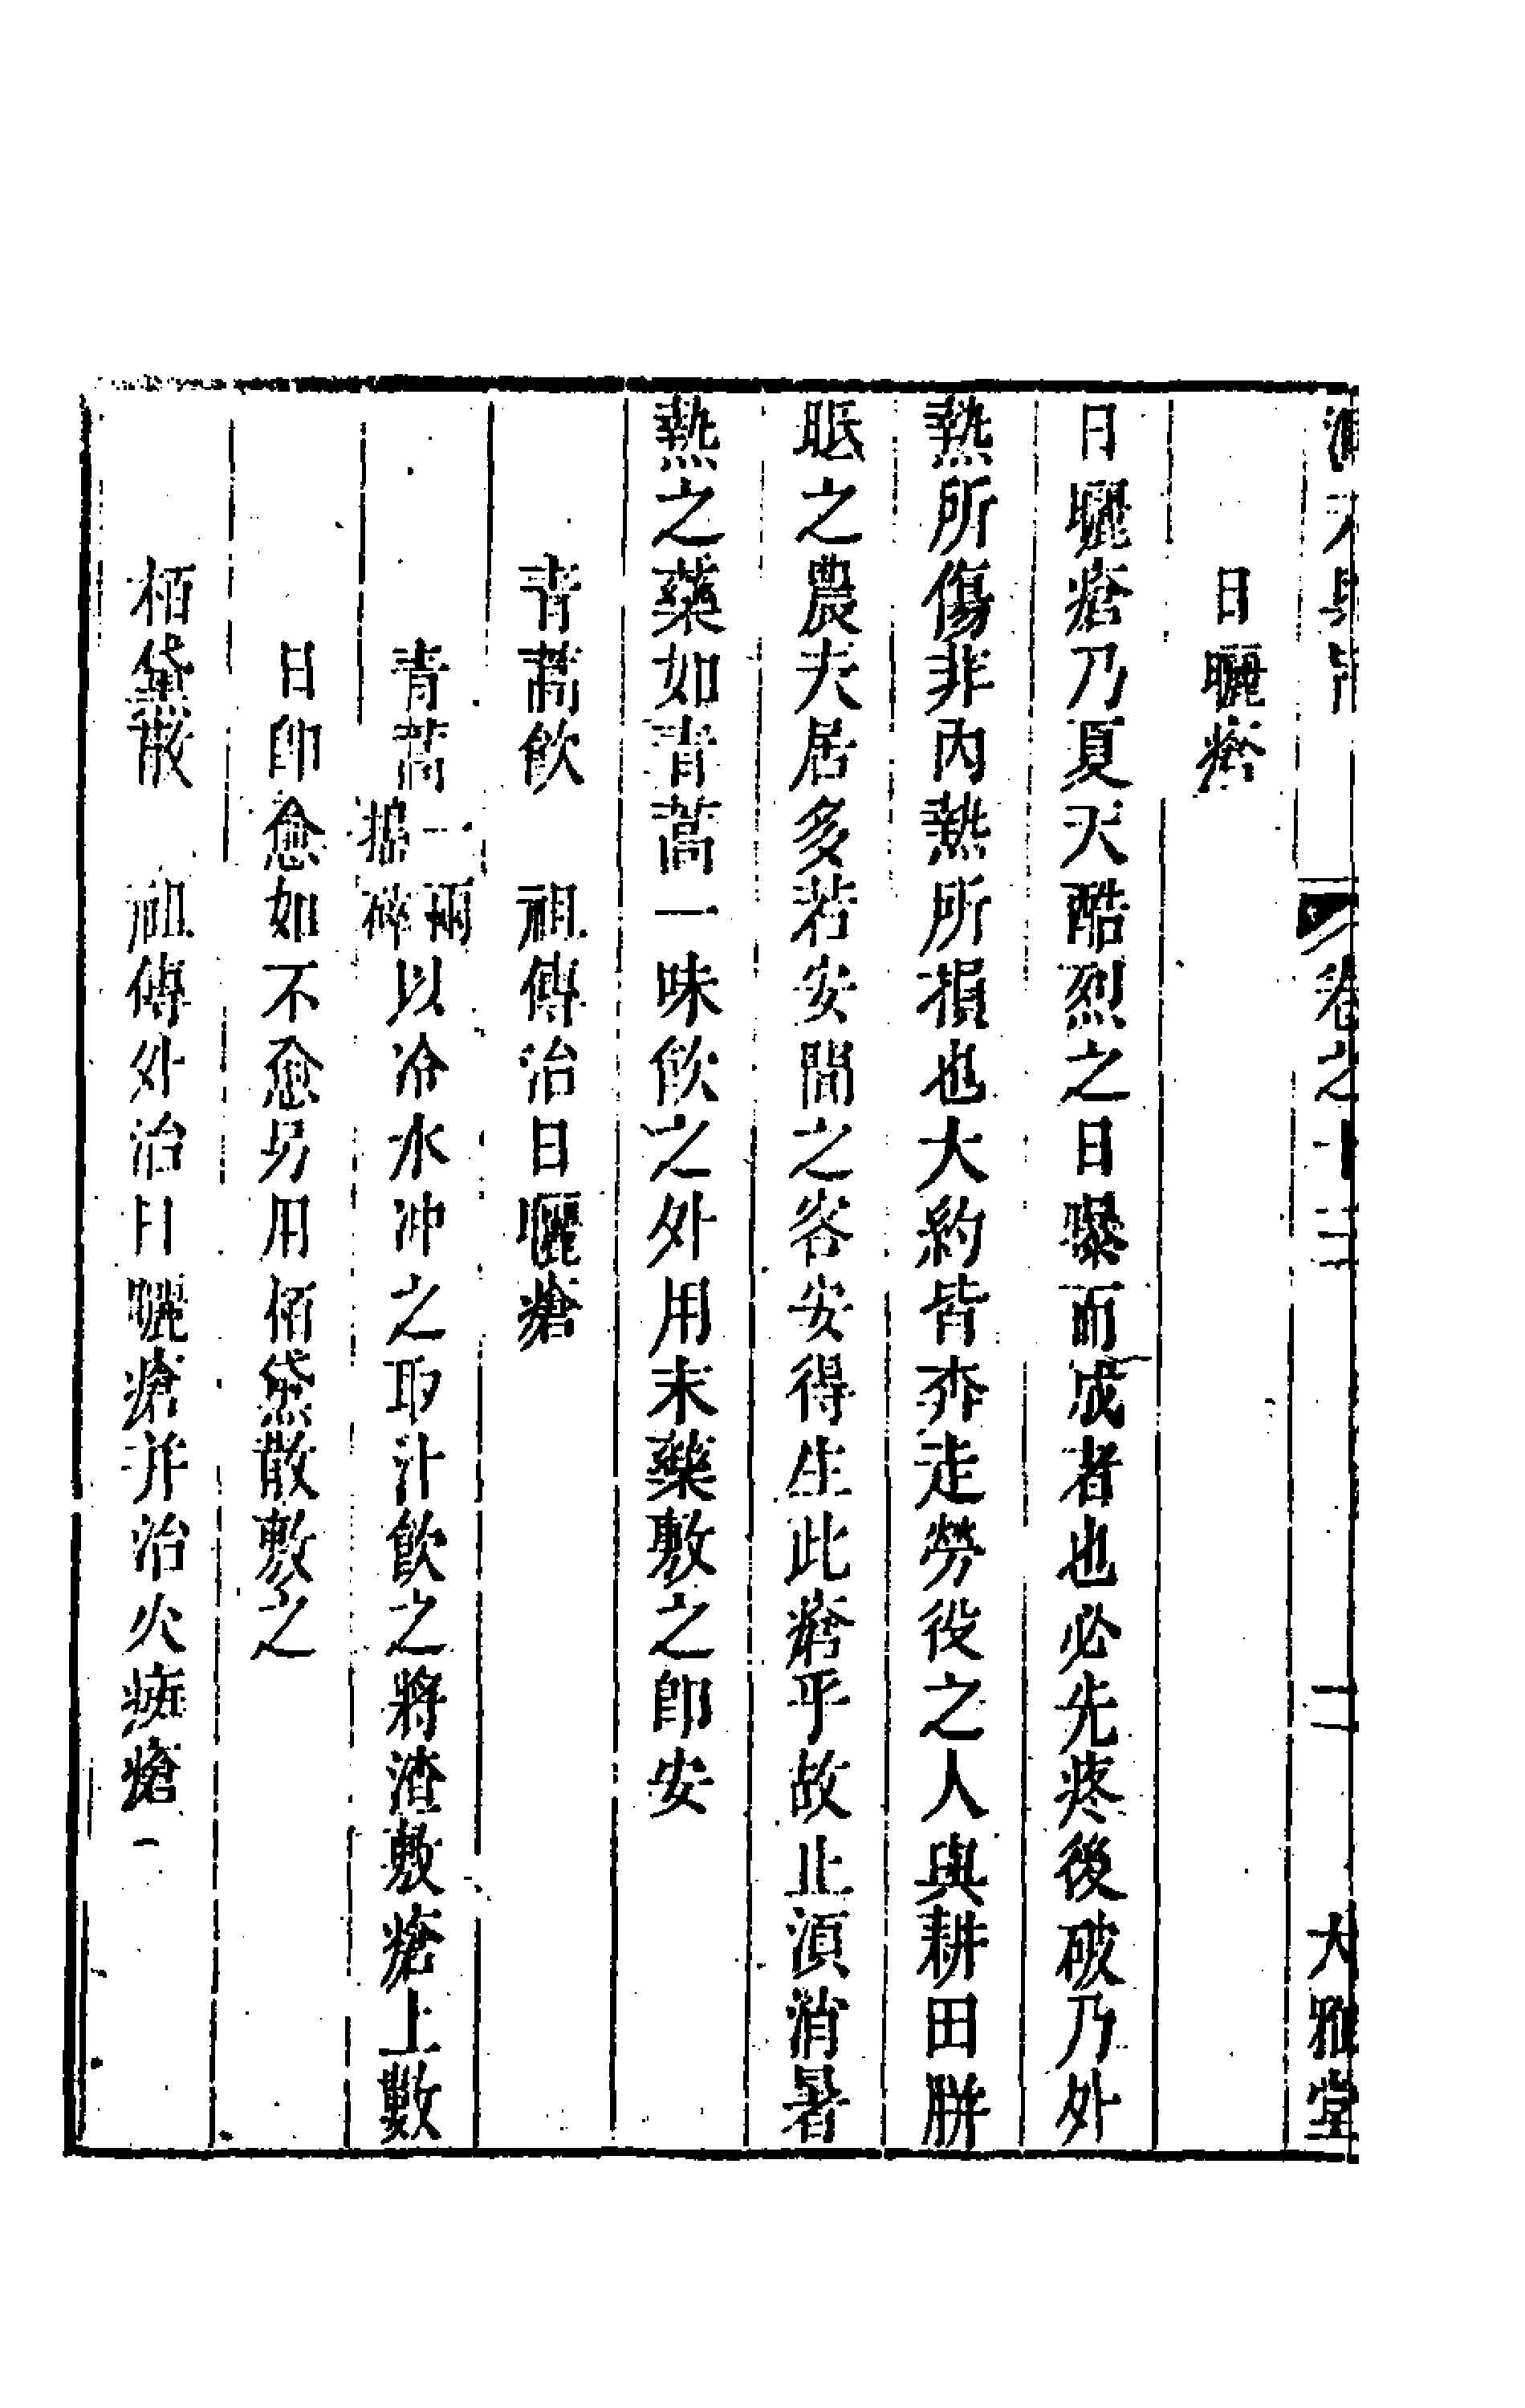 卷之十三 二 大雅堂
日曬瘡
日曬瘡乃夏天酷烈之日曝而成者也必先疼後破乃外
熱所傷非內熱所損也大約皆奔走勞役之人與耕田胼
胝之農夫居多若安閒之客安得生此瘡乎故止湏消暑
熱之藥如青蒿一味飲之外用末藥敷之即安
青蒿飲 祖傳治日曬瘡
青蒿一兩搗碎以冷水冲之取汁飲之將渣敷瘡上數
日即愈如不愈另用栢黛散敷之
栢黛散 祖傳外治日曬瘡并治火瘢瘡